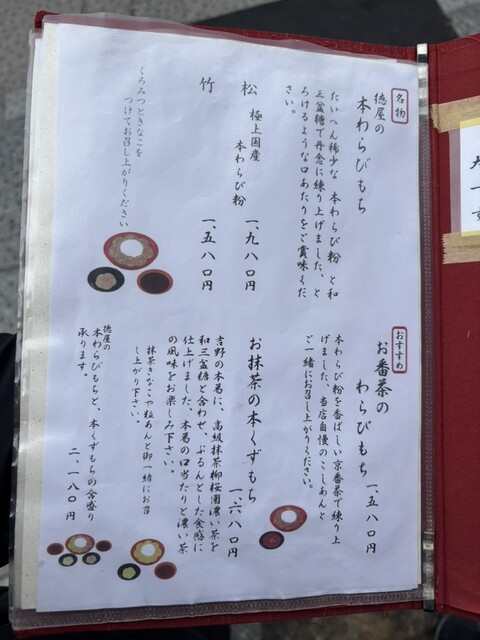 名物
徳屋の
本わらびもち
たいへん稀少な 本わらび粉 と和
三盆糖で丹念に練り上げました、と
ろけるような口あたりをご賞味くだ
さい。
松 極上国産
本わらび粉 一、九八〇円
竹 一、五八〇円
くろみつときなこを
つけてお召し上がりください
おすすめ
お番茶の
わらびもち 一、五八〇円
本わらび粉を香ばしい京番茶で練り上
げました、当店自慢のこしあんと
ご一緒にお召し上がりください。
お抹茶の本くずもち
一、六八〇円
吉野の本葛に、高級抹茶柳桜園濃い茶を
和三盆糖と合わせ、ぷるんとした食感に
仕上げました、本葛の口当たりと濃い茶
の風味をお楽しみ下さい。
抹茶きなこや粒あんと御一緒にお召
し上がり下さい。
徳屋の
本わらびもちと、本くずもちの合盛り
承ります。
二、一八〇円